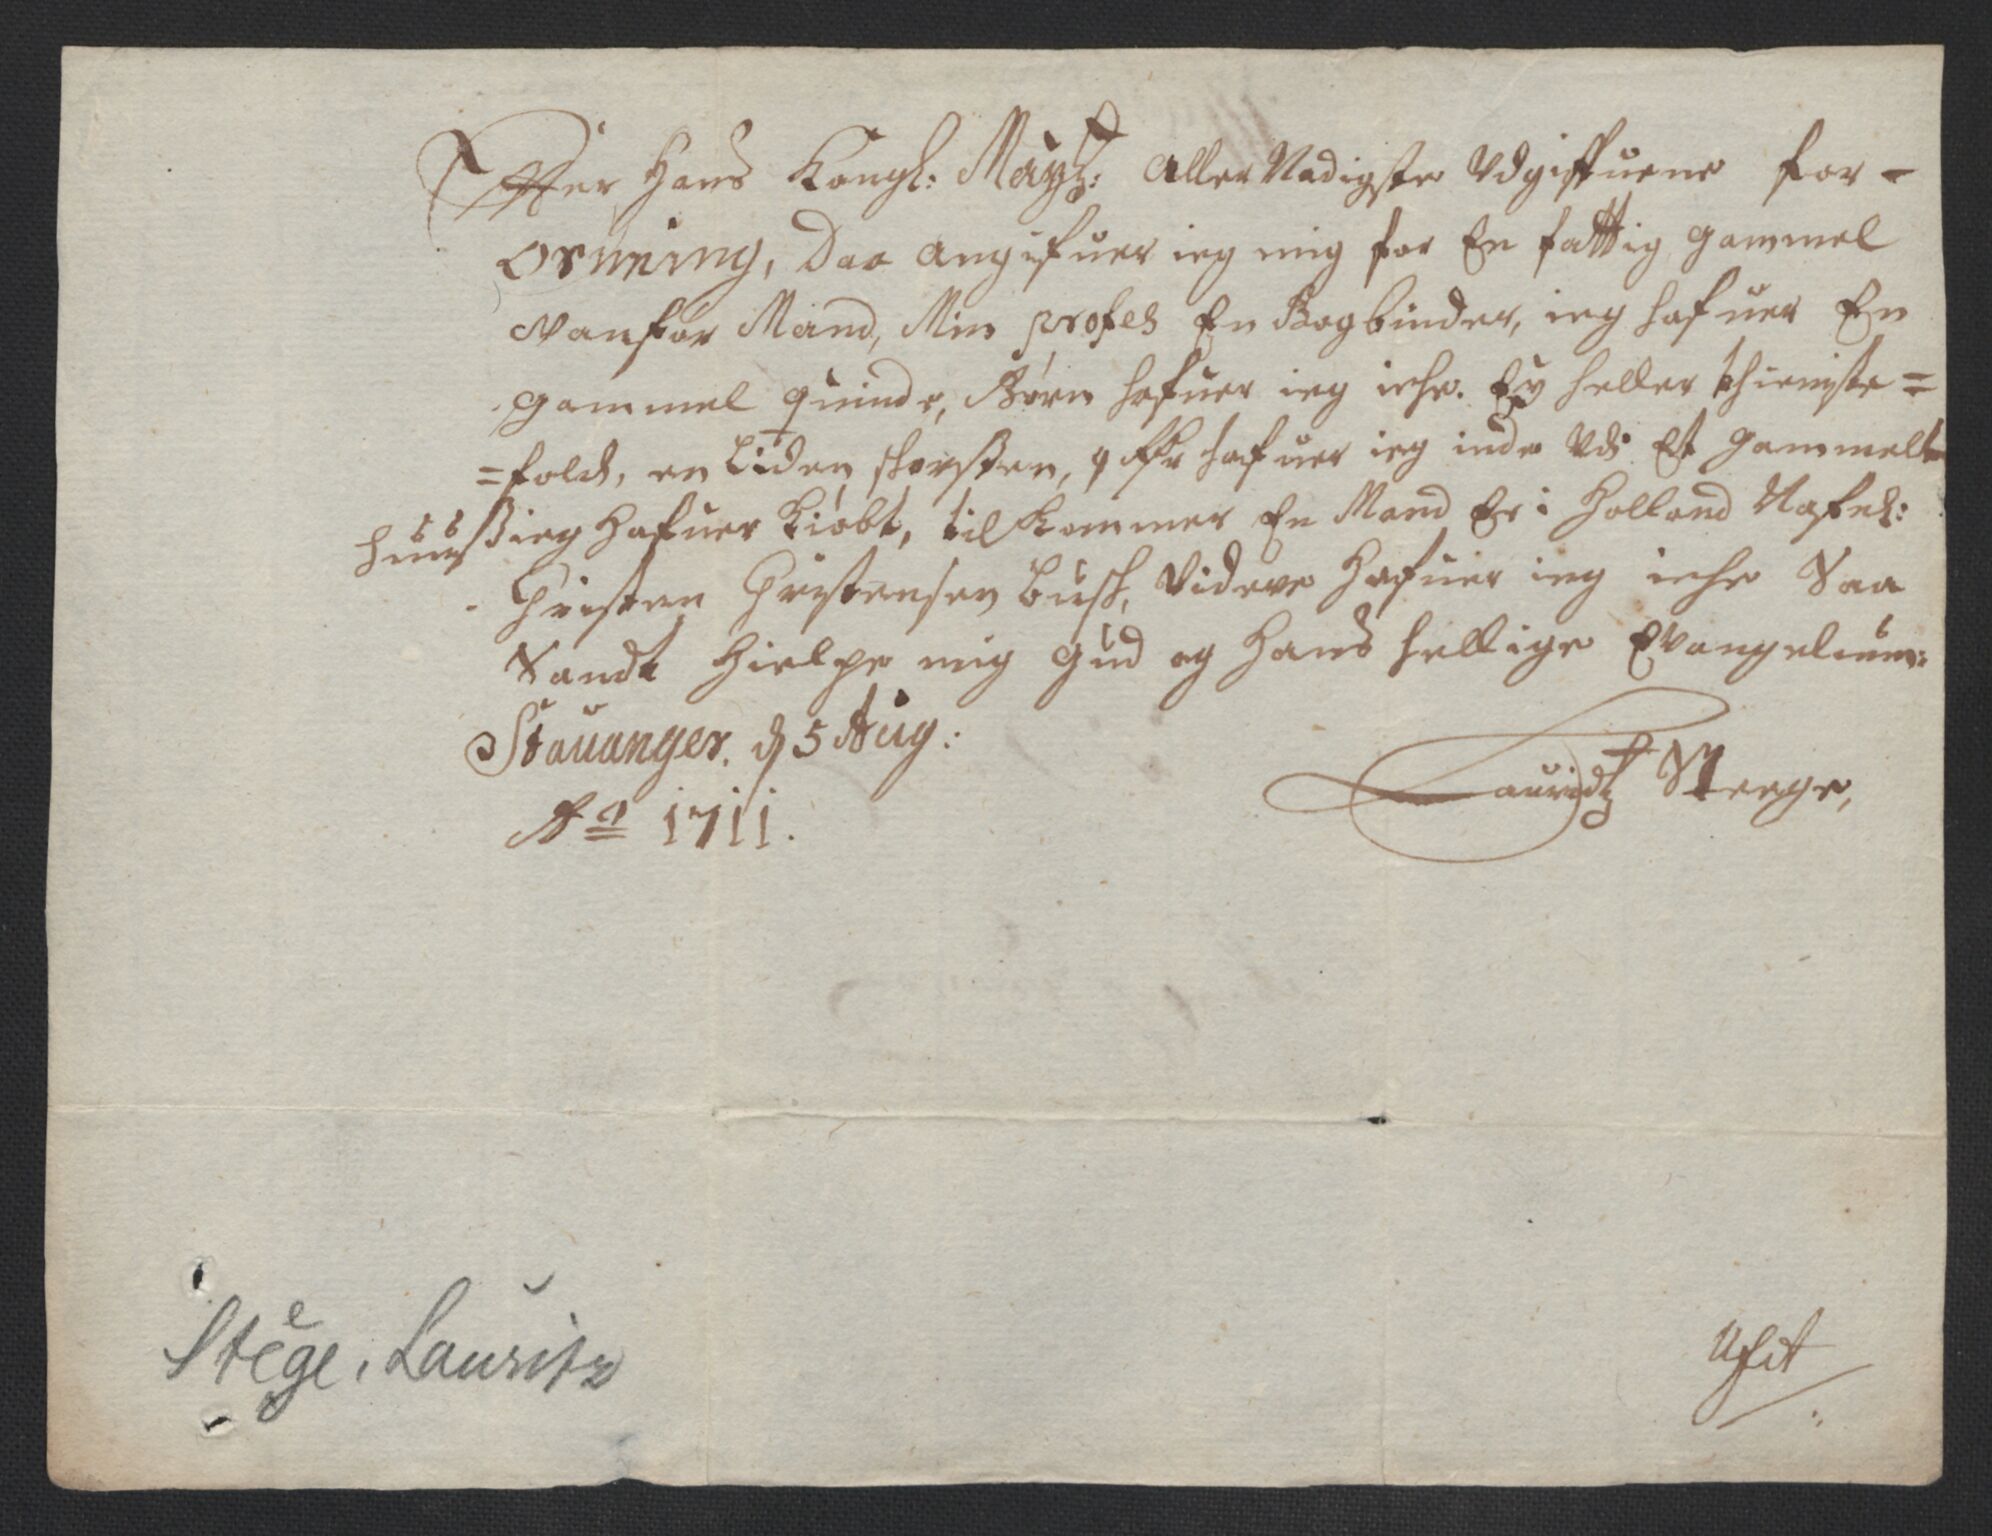 Effter Hans Kongl: Mayt: Aller Nadigste Udgiffuene for-
Ordning, Daa angifuer ieg mig for En fattig gammel
Vanfør Mand, Min profes En Bogbinder, ieg hafuer En
gammel quinde, Børn hafuer ieg iche. Ey heller thieniste=
=folck, en Liden skorsten, hafuer ieg inde Udi Et gammelt
huuß ieg hafuer kiøbt, til kommer En Mand Er i Holland Nafnl:
Christen Christensen Busk, Videre hafuer ieg iche Saa
Sandt Hielpe mig Gud og Hans hellige Evangelium:
Stauanger, d 5 Aug:
Ao 1711.
Lauridtz Steege,
Stege, Lauritz